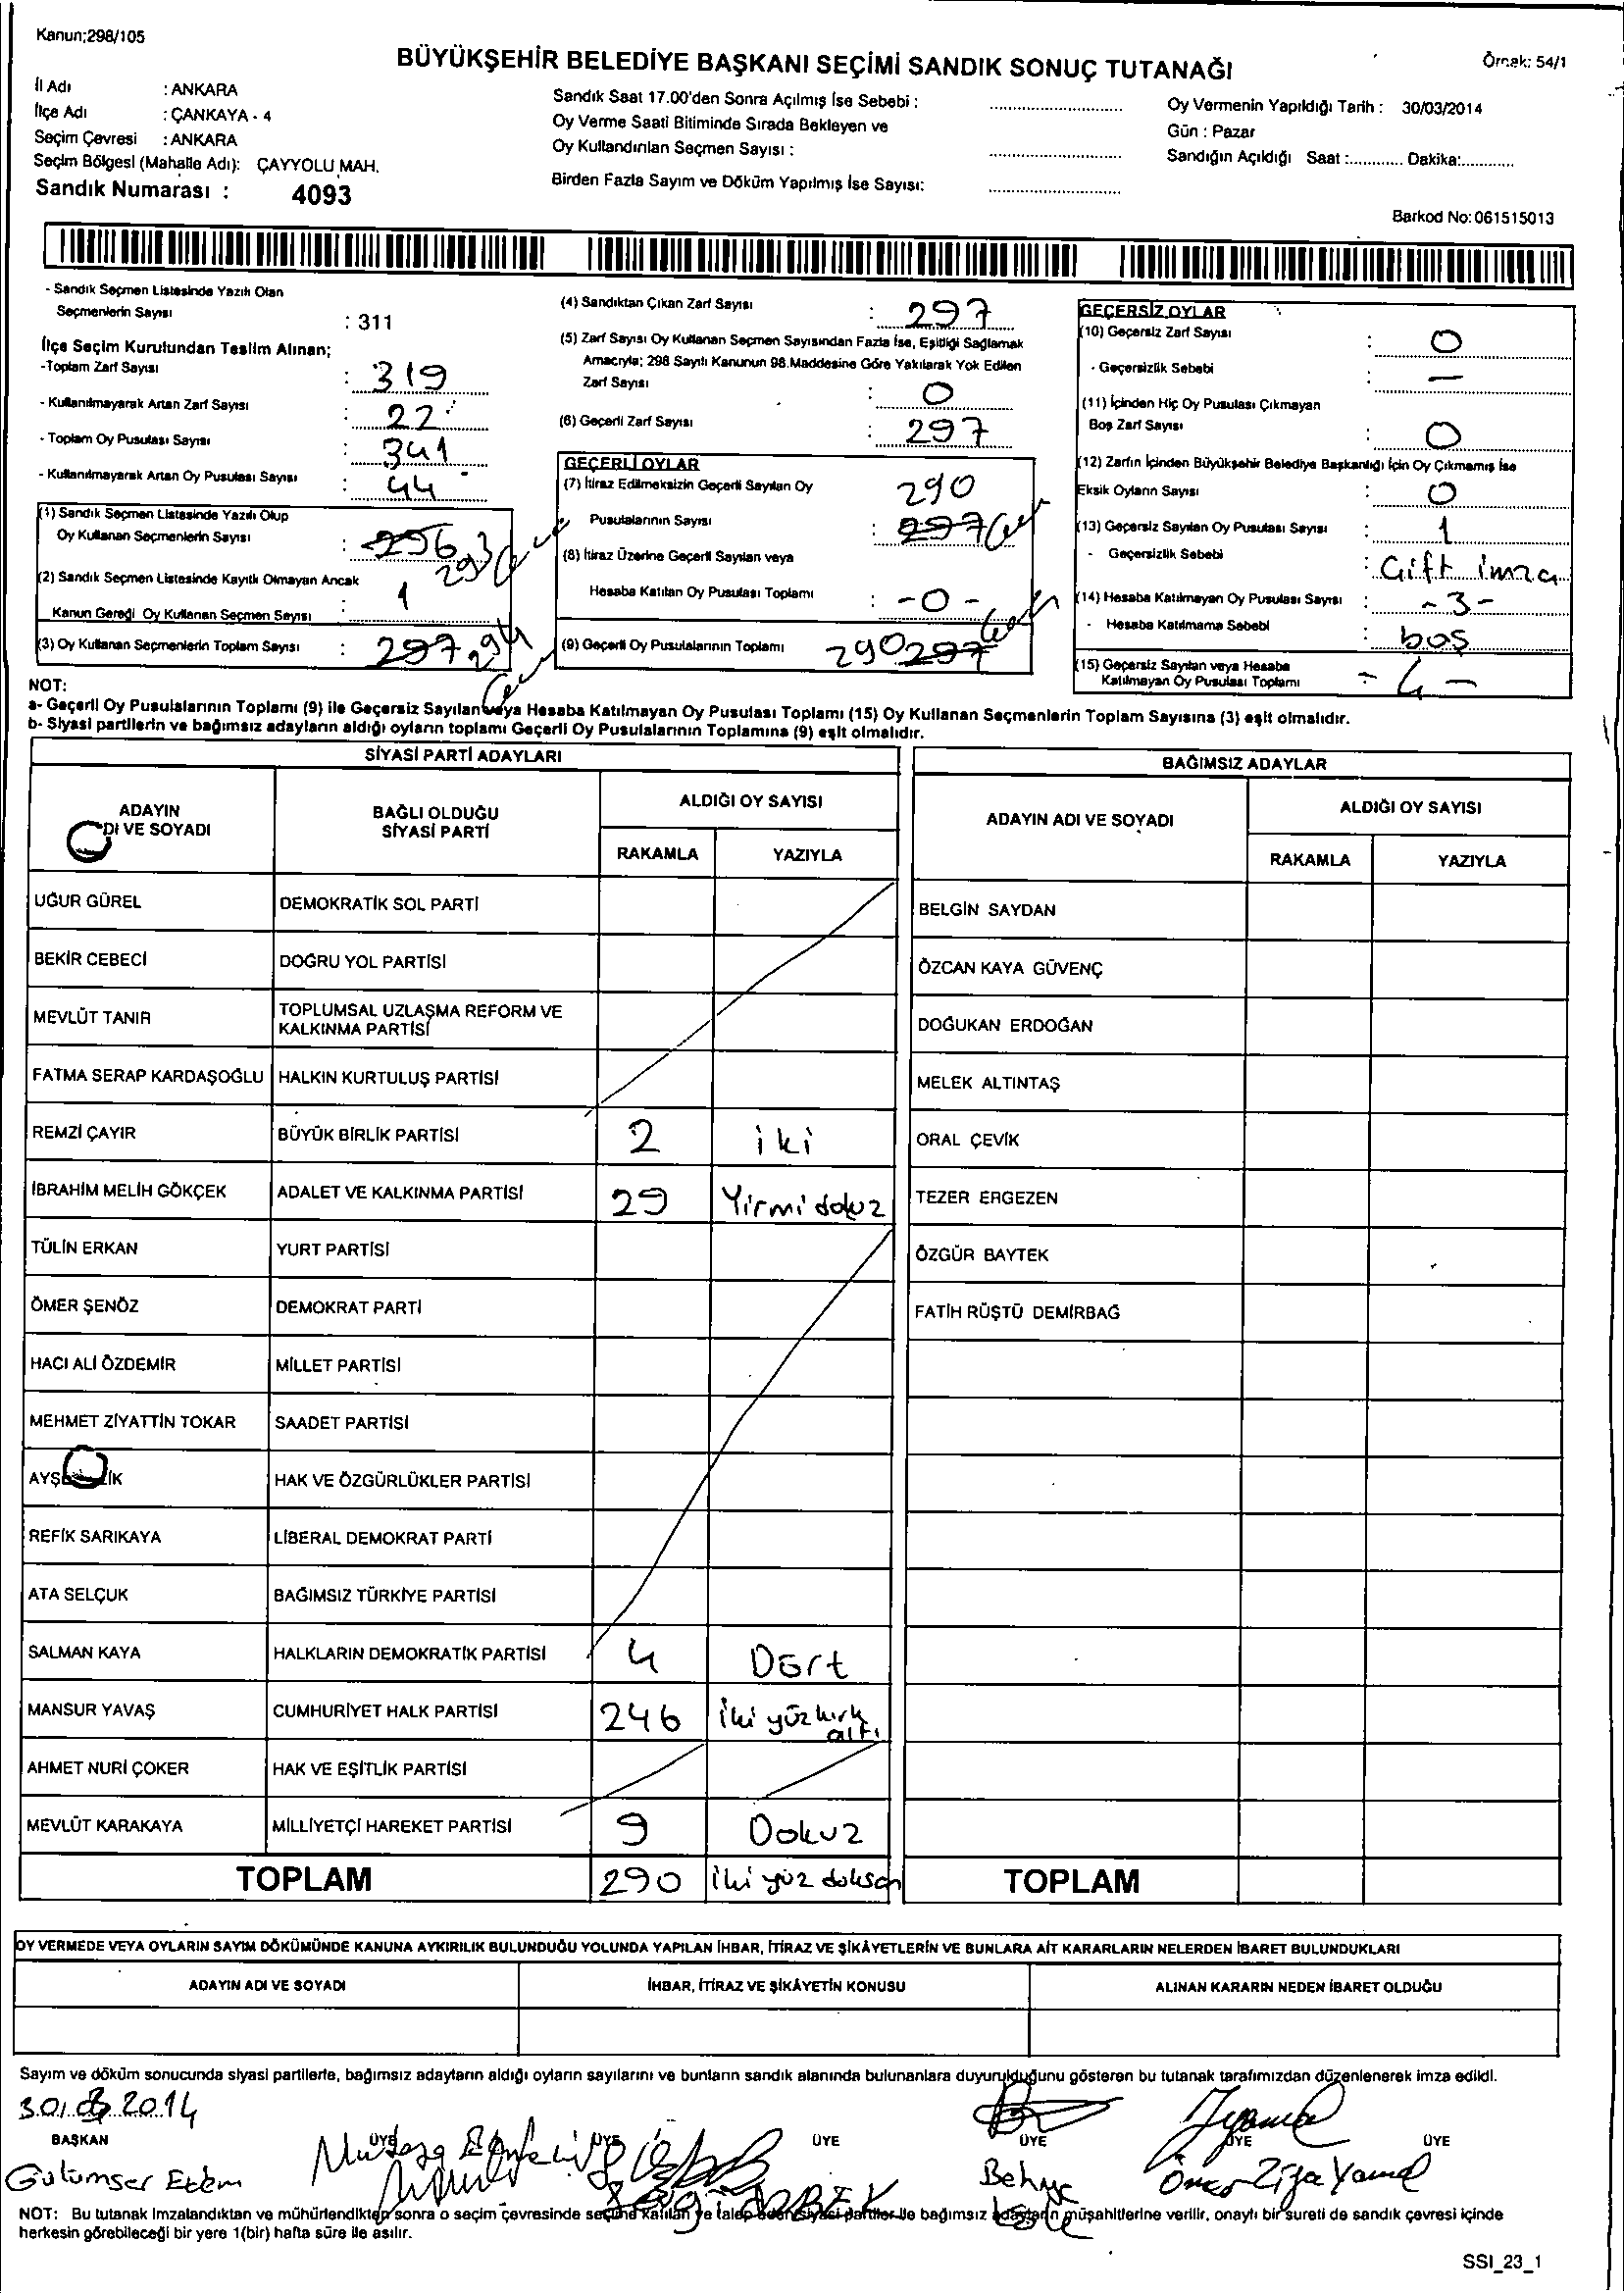 Kanun;298/105
BÜYÜKŞEHİR BELEDİYE BAŞKANI SEÇİMİ SANDIK SONUÇ TUTANAĞI
Örnek: 54/1
İl Adı : ANKARA
İlçe Adı : ÇANKAYA - 4
Seçim Çevresi : ANKARA
Seçim Bölgesi (Mahalle Adı): ÇAYYOLU MAH.
Sandık Numarası : 4093
Sandık Saat 17.00'den Sonra Açılmış İse Sebebi :
Oy Verme Saati Bitiminde Sırada Bekleyen ve
Oy Kullandırılan Seçmen Sayısı :
Birden Fazla Sayım ve Döküm Yapılmış İse Sayısı:
Oy Vermenin Yapıldığı Tarih : 30/03/2014
Gün : Pazar
Sandığın Açıldığı Saat :............ Dakika:............
Barkod No: 061515013
- Sandık Seçmen Listesinde Yazılı Olan
Seçmenlerin Sayısı : 311
İlçe Seçim Kurulundan Teslim Alınan;
-Toplam Zarf Sayısı : 319
- Kullanılmayarak Artan Zarf Sayısı : 22
- Toplam Oy Pusulası Sayısı : 341
- Kullanılmayarak Artan Oy Pusulası Sayısı : 44
(1) Sandık Seçmen Listesinde Yazılı Olup
Oy Kullanan Seçmenlerin Sayısı : 296 293
(2) Sandık Seçmen Listesinde Kayıtlı Olmayan Ancak
Kanun Gereği Oy Kullanan Seçmen Sayısı : 1
(3) Oy Kullanan Seçmenlerin Toplam Sayısı : 297 294
(4) Sandıktan Çıkan Zarf Sayısı : 297
(5) Zarf Sayısı Oy Kullanan Seçmen Sayısından Fazla İse, Eşitliği Sağlamak
Amacıyla; 298 Sayılı Kanunun 98.Maddesine Göre Yakılarak Yok Edilen
Zarf Sayısı : 0
(6) Geçerli Zarf Sayısı : 297
GEÇERLİ OYLAR
(7) İtiraz Edilmeksizin Geçerli Sayılan Oy 290
Pusulalarının Sayısı : 297
(8) İtiraz Üzerine Geçerli Sayılan veya
Hesaba Katılan Oy Pusulası Toplamı : -0-
(9) Geçerli Oy Pusulalarının Toplamı 290 297
GEÇERSİZ OYLAR
(10) Geçersiz Zarf Sayısı : 0
- Geçersizlik Sebebi : —
(11) İçinden Hiç Oy Pusulası Çıkmayan
Boş Zarf Sayısı : 0
(12) Zarfın İçinden Büyükşehir Belediye Başkanlığı İçin Oy Çıkmamış İse
Eksik Oyların Sayısı : 0
(13) Geçersiz Sayılan Oy Pusulası Sayısı : 1
- Geçersizlik Sebebi : Çift imza
(14) Hesaba Katılmayan Oy Pusulası Sayısı : -3-
- Hesaba Katılmama Sebebi : boş
(15) Geçersiz Sayılan veya Hesaba
Katılmayan Oy Pusulası Toplamı - 4 -
NOT:
a- Geçerli Oy Pusulalarının Toplamı (9) ile Geçersiz Sayılan veya Hesaba Katılmayan Oy Pusulası Toplamı (15) Oy Kullanan Seçmenlerin Toplam Sayısına (3) eşit olmalıdır.
b- Siyasi partilerin ve bağımsız adayların aldığı oyların toplamı Geçerli Oy Pusulalarının Toplamına (9) eşit olmalıdır.
SİYASİ PARTİ ADAYLARI
ADAYIN
DI VE SOYADI
BAĞLI OLDUĞU
SİYASİ PARTİ
ALDIĞI OY SAYISI
RAKAMLA YAZIYLA
UĞUR GÜREL DEMOKRATİK SOL PARTİ
BEKİR CEBECİ DOĞRU YOL PARTİSİ
MEVLÜT TANIR TOPLUMSAL UZLAŞMA REFORM VE
KALKINMA PARTİSİ
FATMA SERAP KARDAŞOĞLU HALKIN KURTULUŞ PARTİSİ
REMZİ ÇAYIR BÜYÜK BİRLİK PARTİSİ 2 iki
İBRAHİM MELİH GÖKÇEK ADALET VE KALKINMA PARTİSİ 29 Yirmi dokuz
TÜLİN ERKAN YURT PARTİSİ
ÖMER ŞENÖZ DEMOKRAT PARTİ
HACI ALİ ÖZDEMİR MİLLET PARTİSİ
MEHMET ZİYATTİN TOKAR SAADET PARTİSİ
HAK VE ÖZGÜRLÜKLER PARTİSİ
REFİK SARIKAYA LİBERAL DEMOKRAT PARTİ
ATA SELÇUK BAĞIMSIZ TÜRKİYE PARTİSİ
SALMAN KAYA HALKLARIN DEMOKRATİK PARTİSİ 4 Dört
MANSUR YAVAŞ CUMHURİYET HALK PARTİSİ 246 iki yüz kırk
altı
AHMET NURİ ÇOKER HAK VE EŞİTLİK PARTİSİ
MEVLÜT KARAKAYA MİLLİYETÇİ HAREKET PARTİSİ 9 Dokuz
TOPLAM 290 iki yüz doksan
BAĞIMSIZ ADAYLAR
ADAYIN ADI VE SOYADI
ALDIĞI OY SAYISI
RAKAMLA YAZIYLA
BELGİN SAYDAN
ÖZCAN KAYA GÜVENÇ
DOĞUKAN ERDOĞAN
MELEK ALTINTAŞ
ORAL ÇEVİK
TEZER ERGEZEN
ÖZGÜR BAYTEK
FATİH RÜŞTÜ DEMİRBAĞ
TOPLAM
OY VERMEDE VEYA OYLARIN SAYIM DÖKÜMÜNDE KANUNA AYKIRILIK BULUNDUĞU YOLUNDA YAPILAN İHBAR, İTİRAZ VE ŞİKÂYETLERİN VE BUNLARA AİT KARARLARIN NELERDEN İBARET BULUNDUKLARI
ADAYIN ADI VE SOYADI İHBAR, İTİRAZ VE ŞİKÂYETİN KONUSU ALINAN KARARIN NEDEN İBARET OLDUĞU
Sayım ve döküm sonucunda siyasi partilerle, bağımsız adayların aldığı oyların sayılarını ve bunların sandık alanında bulunanlara duyurulduğunu gösteren bu tutanak tarafımızdan düzenlenerek imza edildi.
30.03.2014
BAŞKAN ÜYE ÜYE ÜYE ÜYE ÜYE ÜYE
Gülümser Ömer Ziya Yamal
NOT: Bu tutanak imzalandıktan ve mühürlendikten sonra o seçim çevresinde seçime katılan ve talep eden siyasi partiler ile bağımsız adayların müşahitlerine verilir, onaylı bir sureti de sandık çevresi içinde
herkesin görebileceği bir yere 1(bir) hafta süre ile asılır.
SSI_23_1